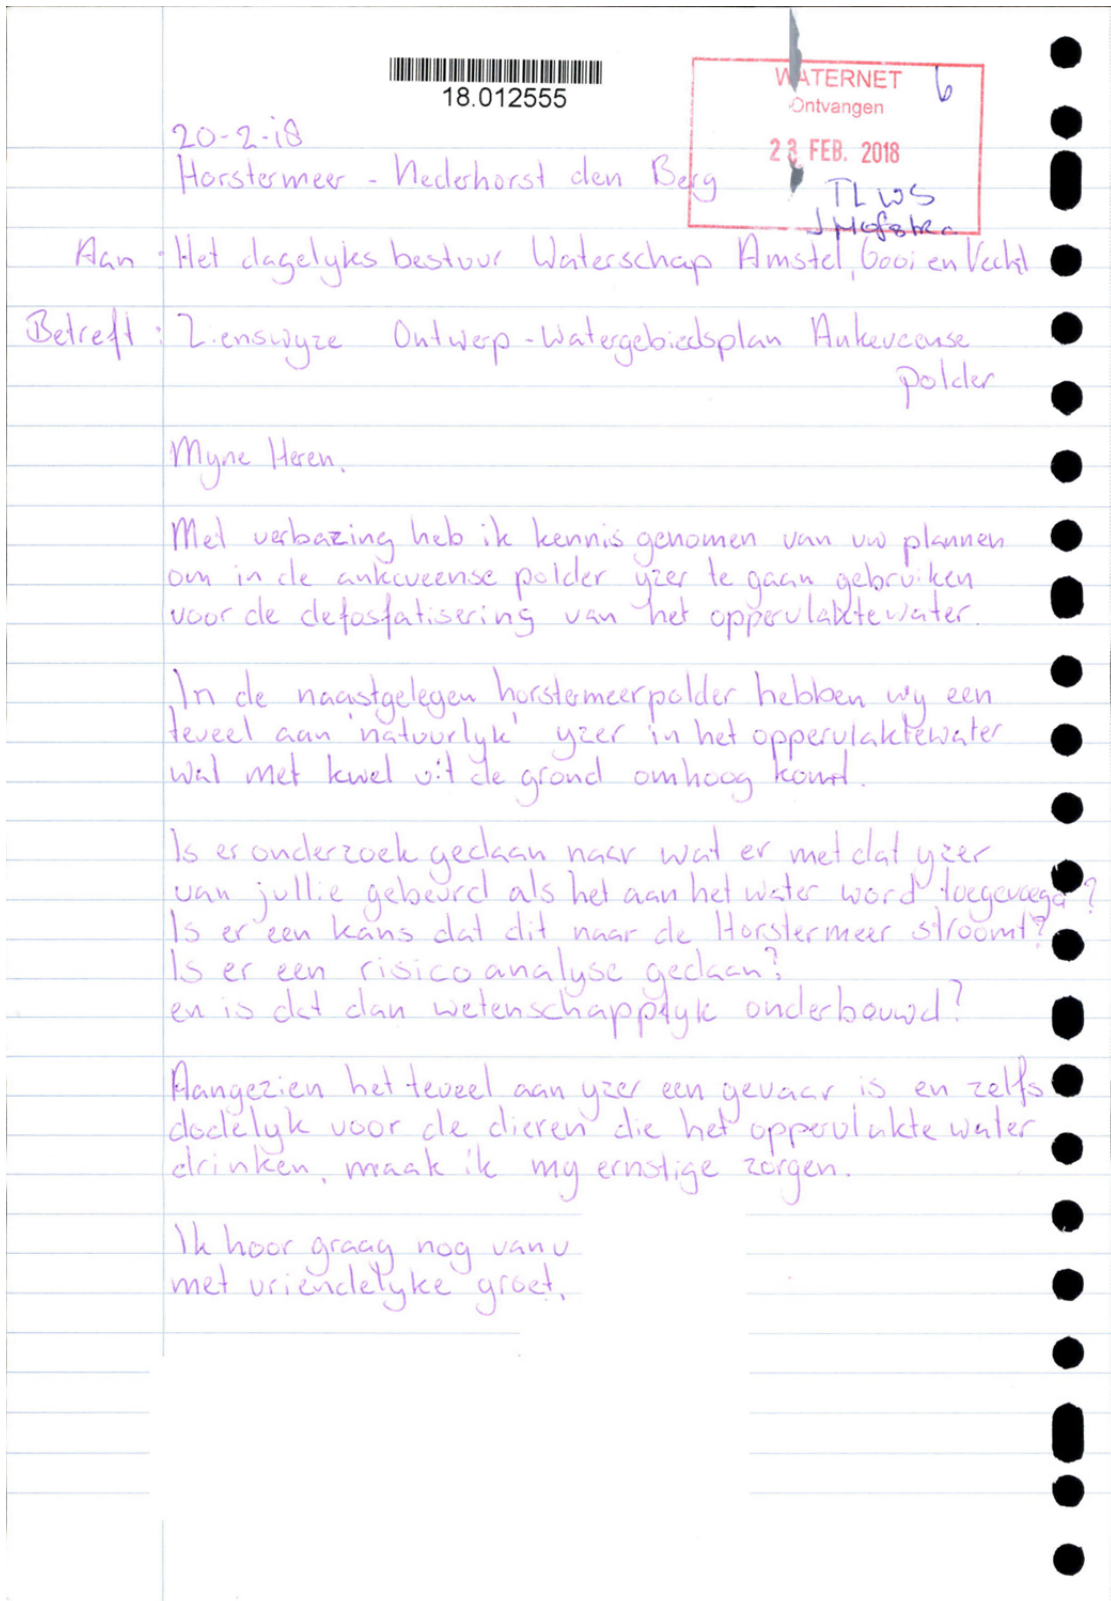 18.012555
WATERNET
Ontvangen
6
23 FEB. 2018
TL WS
J Hofstra
20-2-18
Horstermeer - Nederhorst den Berg
Aan : Het dagelyks bestuur Waterschap Amstel, Gooi en Vecht
Betreft : Zienswyze Ontwerp-Watergebiedsplan Ankeveense
polder
Myne Heren,
Met verbazing heb ik kennis genomen van uw plannen
om in de ankeveense polder yzer te gaan gebruiken
voor de defosfatisering van het oppervlaktewater.
In de naastgelegen horstermeerpolder hebben wy een
teveel aan 'natuurlyk' yzer in het oppervlaktewater
wat met kwel uit de grond omhoog komt.
Is er onderzoek gedaan naar wat er met dat yzer
van jullie gebeurd als het aan het water word toegevoegd?
Is er een kans dat dit naar de Horstermeer stroomt?
Is er een risico analyse gedaan?
en is dat dan wetenschappelyk onderbouwd?
Aangezien het teveel aan yzer een gevaar is en zelfs
dodelyk voor de dieren die het oppervlakte water
drinken, maak ik my ernstige zorgen.
Ik hoor graag nog van u
met vriendelyke groet,